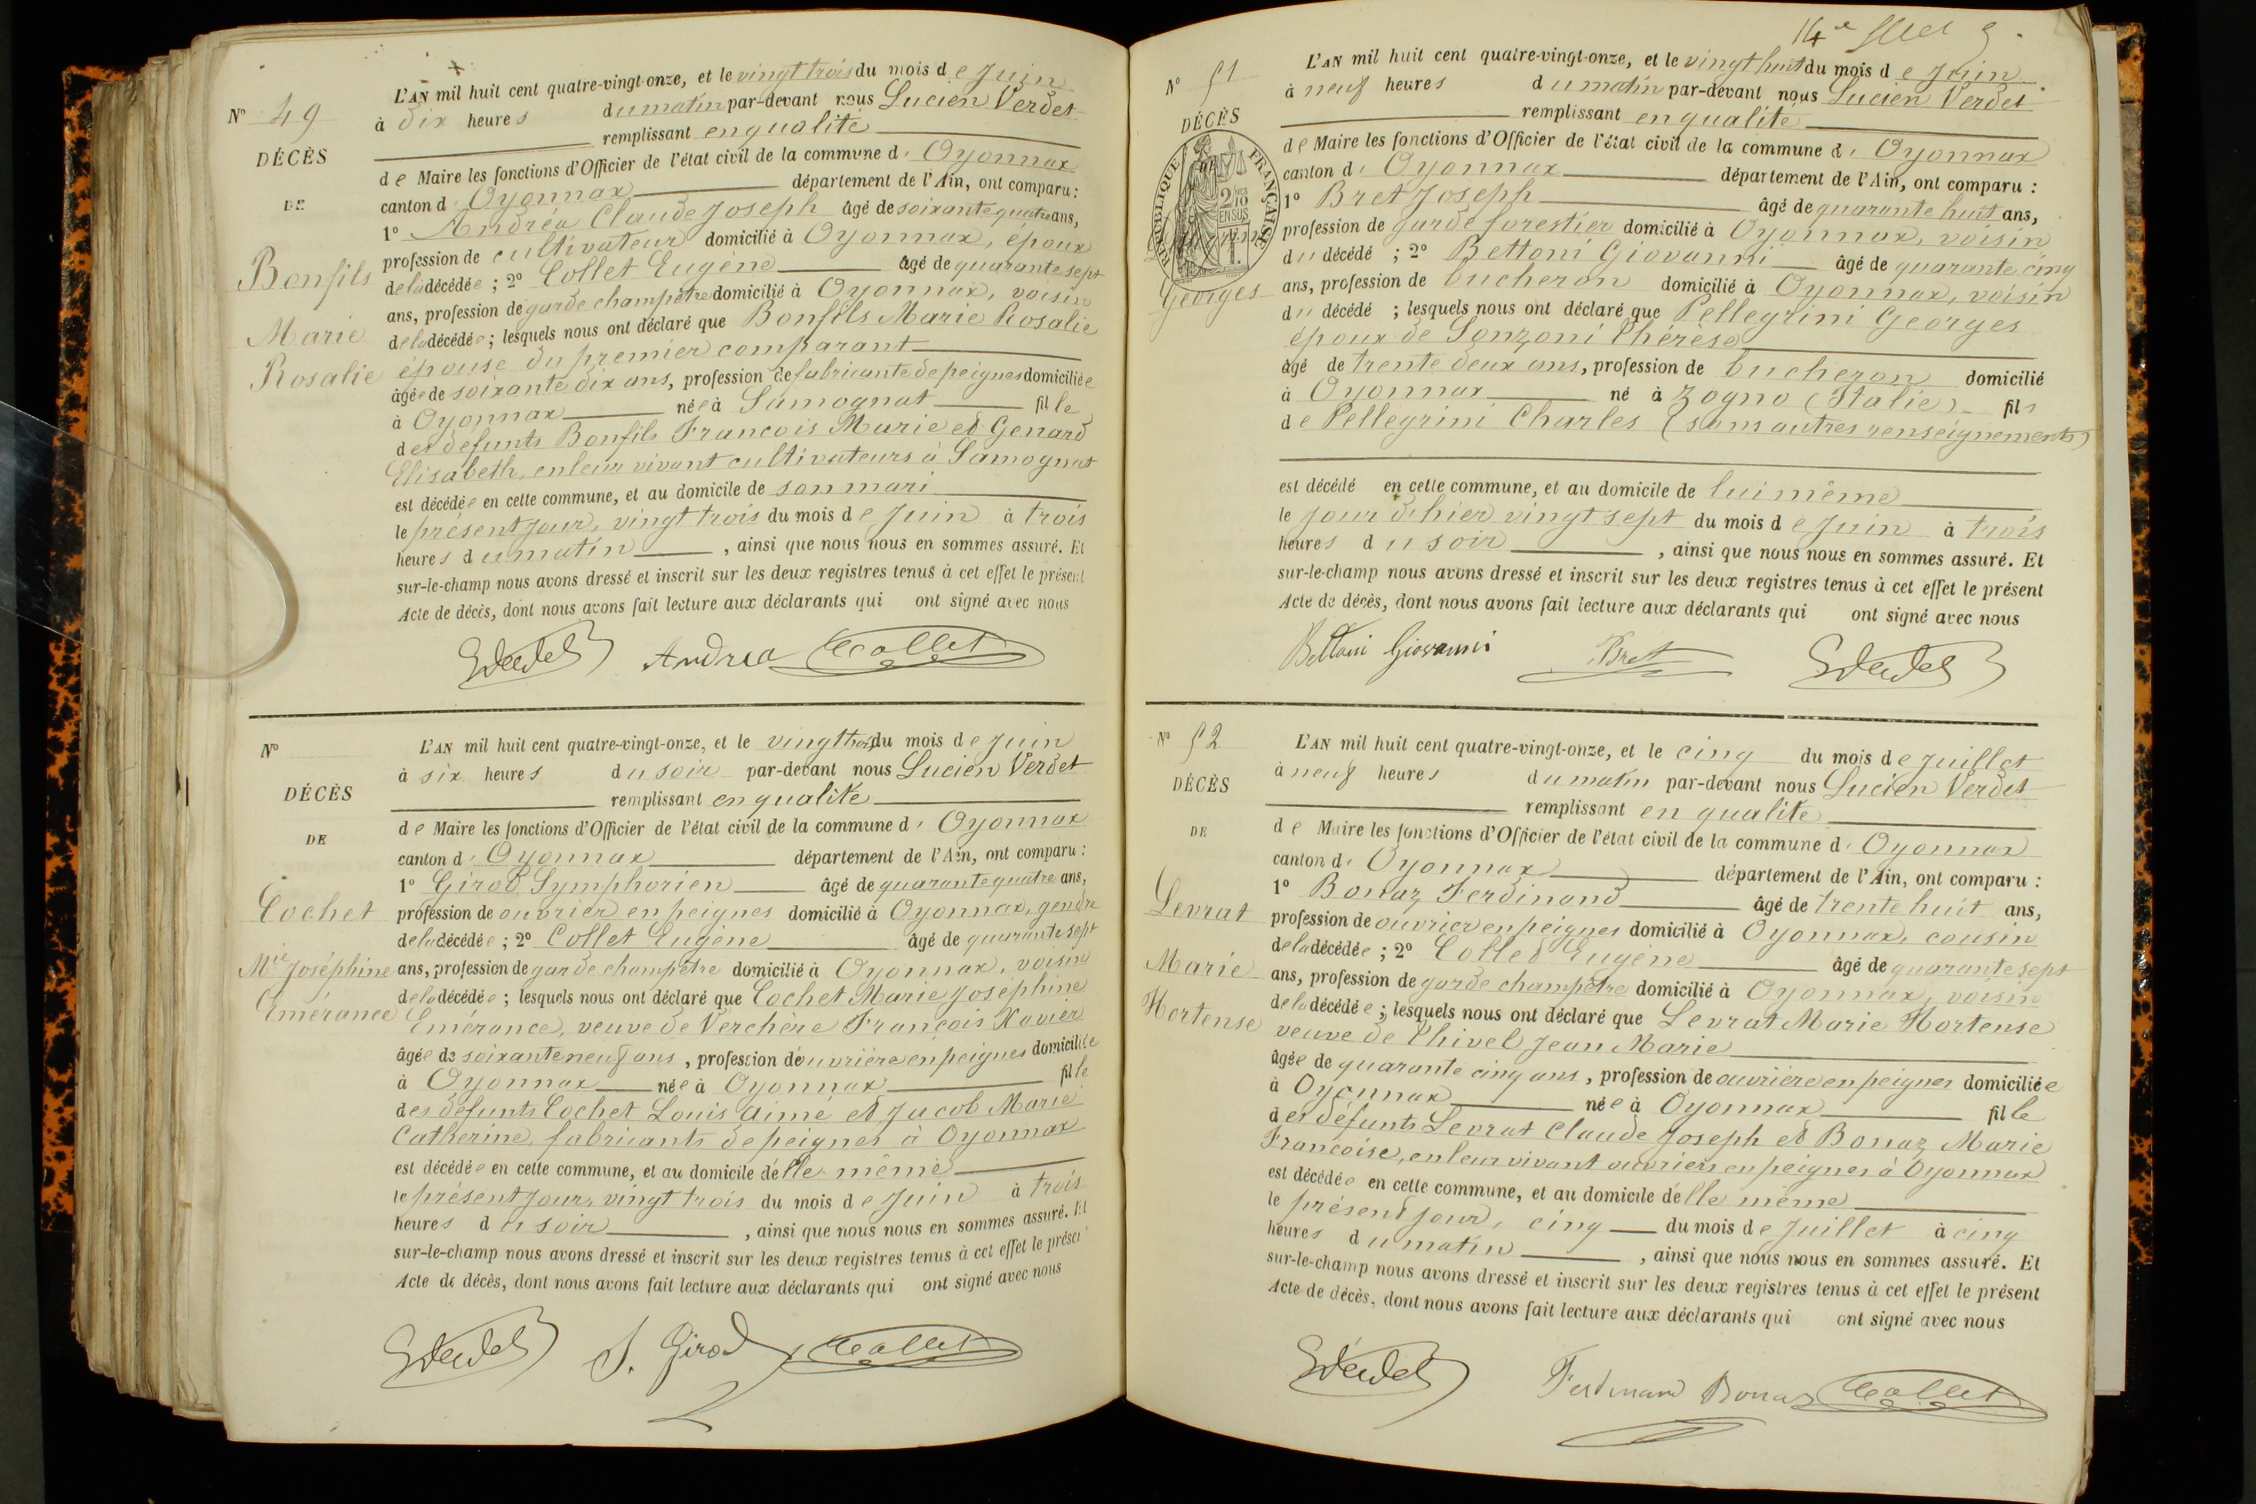 N° 49
DÉCÈS
DE
Bonfils
Marie
Rosalie
L'AN mil huit cent quatre-vingt-onze, et le vingt trois du mois de Juin
à dix heures du matin par-devant nous Lucien Verdet
remplissant en qualité
de Maire les fonctions d'Officier de l'état civil de la commune d' Oyonnax
canton d' Oyonnax département de l'Ain, ont comparu :
1° Andréa Claude Joseph âgé de soixante quatre ans,
profession de cultivateur domicilié à Oyonnax, époux
de la décédée ; 2° Collet Eugène âgé de quarante sept
ans, profession de garde champêtre domicilié à Oyonnax, voisin
de la décédée ; lesquels nous ont déclaré que Bonfils Marie Rosalie
épouse du premier comparant
âgée de soixante dix ans, profession de fabricante de peignes domiciliée
à Oyonnax née à Samognat fille
des défunts Bonfils François Marie et Genard
Elisabeth, en leur vivant cultivateurs à Samognat
est décédée en cette commune, et au domicile de son mari
le présent jour, vingt trois du mois de Juin à trois
heures du matin , ainsi que nous nous en sommes assuré. Et
sur-le-champ nous avons dressé et inscrit sur les deux registres tenus à cet effet le présent
Acte de décès, dont nous avons fait lecture aux déclarants qui ont signé avec nous
Andrea Collet
N°
DÉCÈS
DE
Cochet
Mie Joséphine
Emérance
L'AN mil huit cent quatre-vingt-onze, et le vingt trois du mois de Juin
à six heures du soir par-devant nous Lucien Verdet
remplissant en qualité
de Maire les fonctions d'Officier de l'état civil de la commune d' Oyonnax
canton d' Oyonnax département de l'Ain, ont comparu :
1° Girod Symphorien âgé de quarante quatre ans,
profession de ouvrier en peignes domicilié à Oyonnax, gendre
de la décédée ; 2° Collet Eugène âgé de quarante sept
ans, profession de garde champêtre domicilié à Oyonnax, voisin
de la décédée ; lesquels nous ont déclaré que Cochet Marie Joséphine
Emérance, veuve de Verchère François Xavier
âgée de soixante neuf ans, profession de ouvrière en peignes domiciliée
à Oyonnax née à Oyonnax fille
des défunts Cochet Louis Aimé et Jacob Marie
Catherine, fabricants de peignes à Oyonnax
est décédée en cette commune, et au domicile d'elle même
le présent jour, vingt trois du mois de Juin à trois
heures du soir , ainsi que nous nous en sommes assuré. Et
sur-le-champ nous avons dressé et inscrit sur les deux registres tenus à cet effet le présent
Acte de décès, dont nous avons fait lecture aux déclarants qui ont signé avec nous
S. Girod Collet
N° 51
DÉCÈS
RÉPUBLIQUE FRANÇAISE
2/10 EN SUS
Georges
L'AN mil huit cent quatre-vingt-onze, et le vingt huit du mois de Juin
à neuf heures du matin par-devant nous Lucien Verdet
remplissant en qualité
de Maire les fonctions d'Officier de l'état civil de la commune d' Oyonnax
canton d' Oyonnax département de l'Ain, ont comparu :
1° Bret Joseph âgé de quarante huit ans,
profession de garde forestier domicilié à Oyonnax, voisin
du décédé ; 2° Bettoni Giovanni âgé de quarante cinq
ans, profession de bucheron domicilié à Oyonnax, voisin
du décédé ; lesquels nous ont déclaré que Pellegrini Georges
époux de Sonzoni Thérèse
âgé de trente deux ans, profession de bucheron domicilié
à Oyonnax né à Zogno (Italie) fils
de Pellegrini Charles (sans autres renseignements)
est décédé en cette commune, et au domicile de lui même
le jour d'hier vingt sept du mois de Juin à trois
heures du soir , ainsi que nous nous en sommes assuré. Et
sur-le-champ nous avons dressé et inscrit sur les deux registres tenus à cet effet le présent
Acte de décès, dont nous avons fait lecture aux déclarants qui ont signé avec nous
Bettoni Giovanni Bret
N° 52
DÉCÈS
DE
Levrat
Marie
Hortense
L'AN mil huit cent quatre-vingt-onze, et le cinq du mois de Juillet
à neuf heures du matin par-devant nous Lucien Verdet
remplissant en qualité
de Maire les fonctions d'Officier de l'état civil de la commune d' Oyonnax
canton d' Oyonnax département de l'Ain, ont comparu :
1° Bonaz Ferdinand âgé de trente huit ans,
profession de ouvrier en peignes domicilié à Oyonnax, cousin
de la décédée ; 2° Collet Eugène âgé de quarante sept
ans, profession de garde champêtre domicilié à Oyonnax, voisin
de la décédée ; lesquels nous ont déclaré que Levrat Marie Hortense
veuve de Chivel Jean Marie
âgée de quarante cinq ans, profession de ouvrière en peignes domiciliée
à Oyonnax née à Oyonnax fille
des défunts Levrat Claude Joseph et Bonaz Marie
Francoise, en leur vivant ouvriers en peignes à Oyonnax
est décédée en cette commune, et au domicile d'elle même
le présent jour, cinq du mois de Juillet à cinq
heures du matin , ainsi que nous nous en sommes assuré. Et
sur-le-champ nous avons dressé et inscrit sur les deux registres tenus à cet effet le présent
Acte de décès, dont nous avons fait lecture aux déclarants qui ont signé avec nous
Ferdinand Bonaz Collet